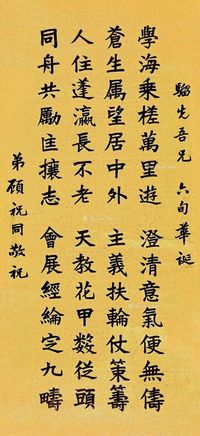 騮先吾兄　六旬華誕
學海乘槎萬里遊　澄清意氣便無儔
蒼生属望居中外　主義扶輪仗策籌
人住蓬瀛長不老　天教花甲数從頭
同舟共勵匡攘志　會展經綸定九疇
弟顧祝同敬祝